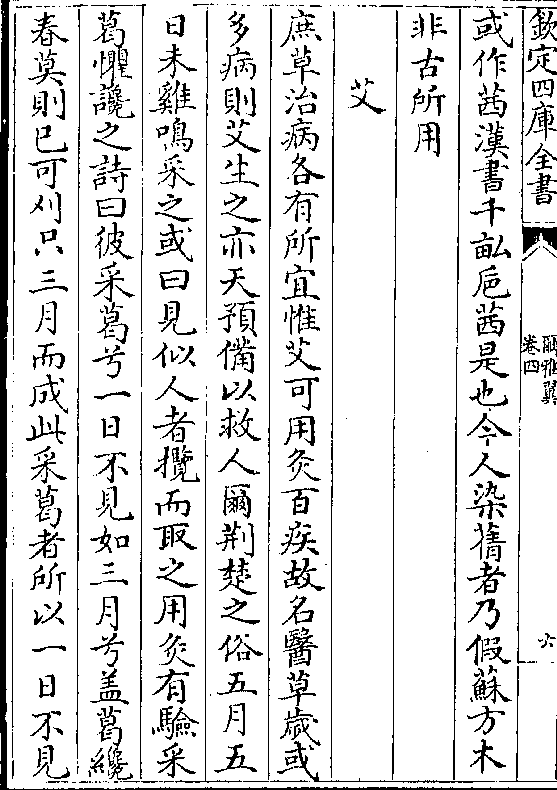 欽定四庫全書
爾雅翼
卷四
六
或作茜漢書千畝巵茜是也今人染蒨者乃假蘇方木
非古所用
艾
庶草治病各有所宜惟艾可用灸百疾故名醫草歲或
多病則艾生之亦天預備以救人爾荆楚之俗五月五
日未雞鳴采之或曰見似人者攬而取之用灸有驗采
葛懼讒之詩曰彼采葛兮一日不見如三月兮盖葛纔
春莫則已可刈只三月而成此采葛者所以一日不見